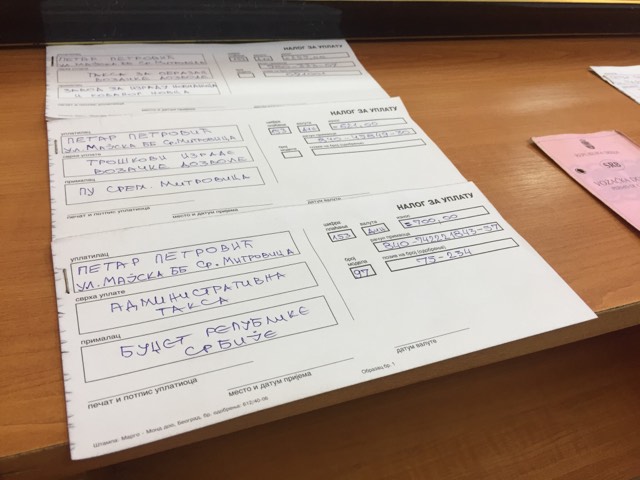 НАЛОГ ЗА УПЛАТУ
ПЕТАР ПЕТРОВИЋ
УЛ. МАЈСКА ББ СР. МИТРОВИЦА
ТАКСА ЗА ОБРАЗАЦ
ВОЗАЧКЕ ДОЗВОЛЕ
ЗАВОД ЗА ИЗРАДУ
И КОВАНОГ НОВЦА
печат и потпис уплатиоца
место и датум пријема
НАЛОГ ЗА УПЛАТУ
уплатилац
ПЕТАР ПЕТРОВИЋ
УЛ. МАЈСКА ББ СР. МИТРОВИЦА
сврха уплате
ТРОШКОВИ ИЗРАДЕ
ВОЗАЧКЕ ДОЗВОЛЕ
прималац
ПУ СРЕМ. МИТРОВИЦА
шифра плаћања
валута
износ
ДИН
печат и потпис уплатиоца
место и датум пријема
датум валута
НАЛОГ ЗА УПЛАТУ
уплатилац
ПЕТАР ПЕТРОВИЋ
УЛ. МАЈСКА ББ СР. МИТРОВИЦА
сврха уплате
АДМИНИСТРАТИВНА
ТАКСА
прималац
БУЏЕТ РЕПУБЛИКЕ
СРБИЈЕ
шифра плаћања
валута
износ
153
ДИН
700,00
рачун примаоца
840-742221843-57
број модела
позив на број (одобрење)
97
75-234
печат и потпис уплатиоца
место и датум пријема
датум валута
Образац бр. 1
SRB